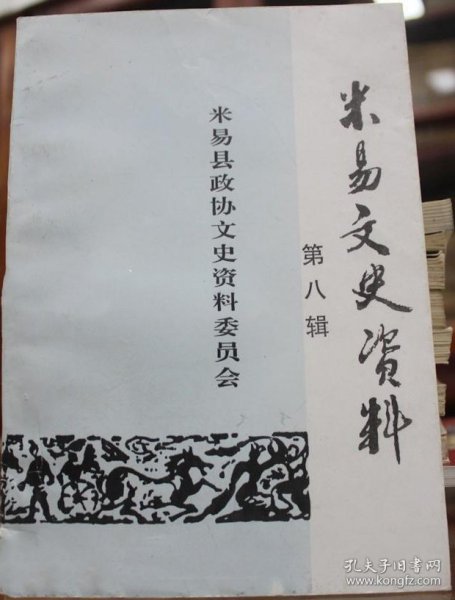 米易文史资料
第八辑
米易县政协文史资料委员会
孔夫子旧书网
www.kongfz.com